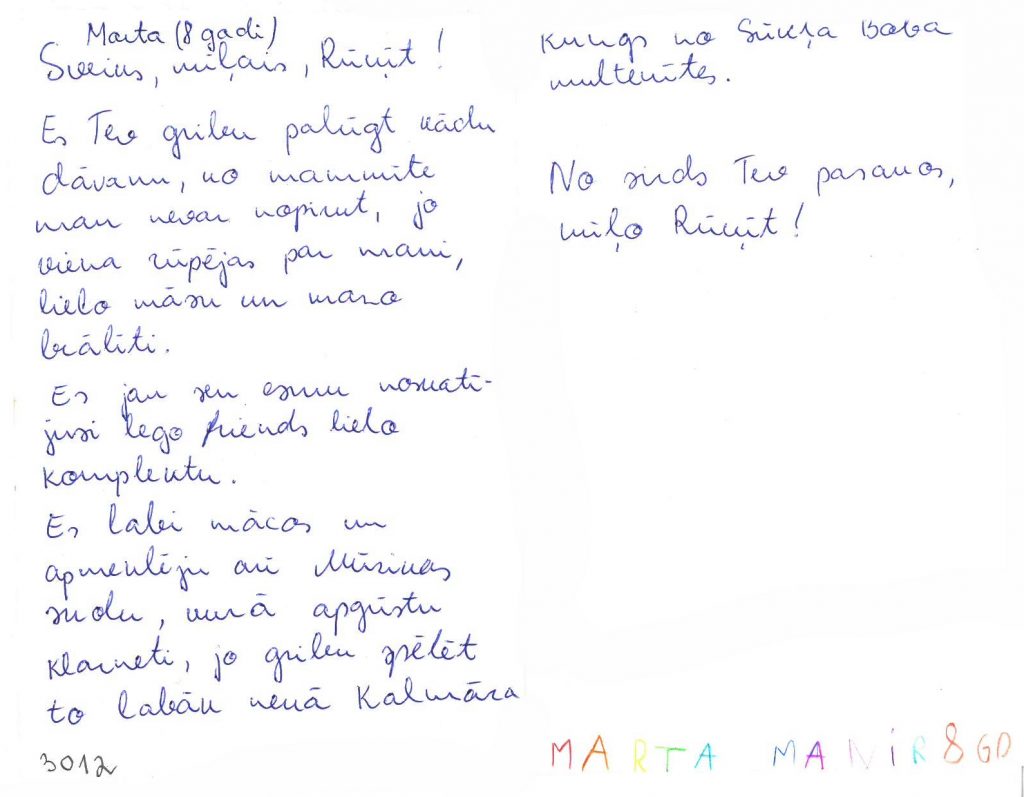 Marta (8 gadi)
Sveiks, mīļais, Rūķīt!
Es Tev gribu palūgt kādu
dāvanu, ko mammīte
man nevar nopirkt, jo
viena rūpējas par mani,
lielo māsu un mazo
brālīti.
Es jau sen esmu noskatī-
jusi lego friends lielo
komplektu.
Es labi mācos un
apmeklēju arī Mūzikas
skolu, kurā apgūstu
klarneti, jo gribu spēlēt
to labāk nekā Kalmāra
3012
kungs no Sūkļa Boba
multenītes.
No sirds Tev pasakos,
mīļo Rūķīt!
MARTA MANIR 8 GD